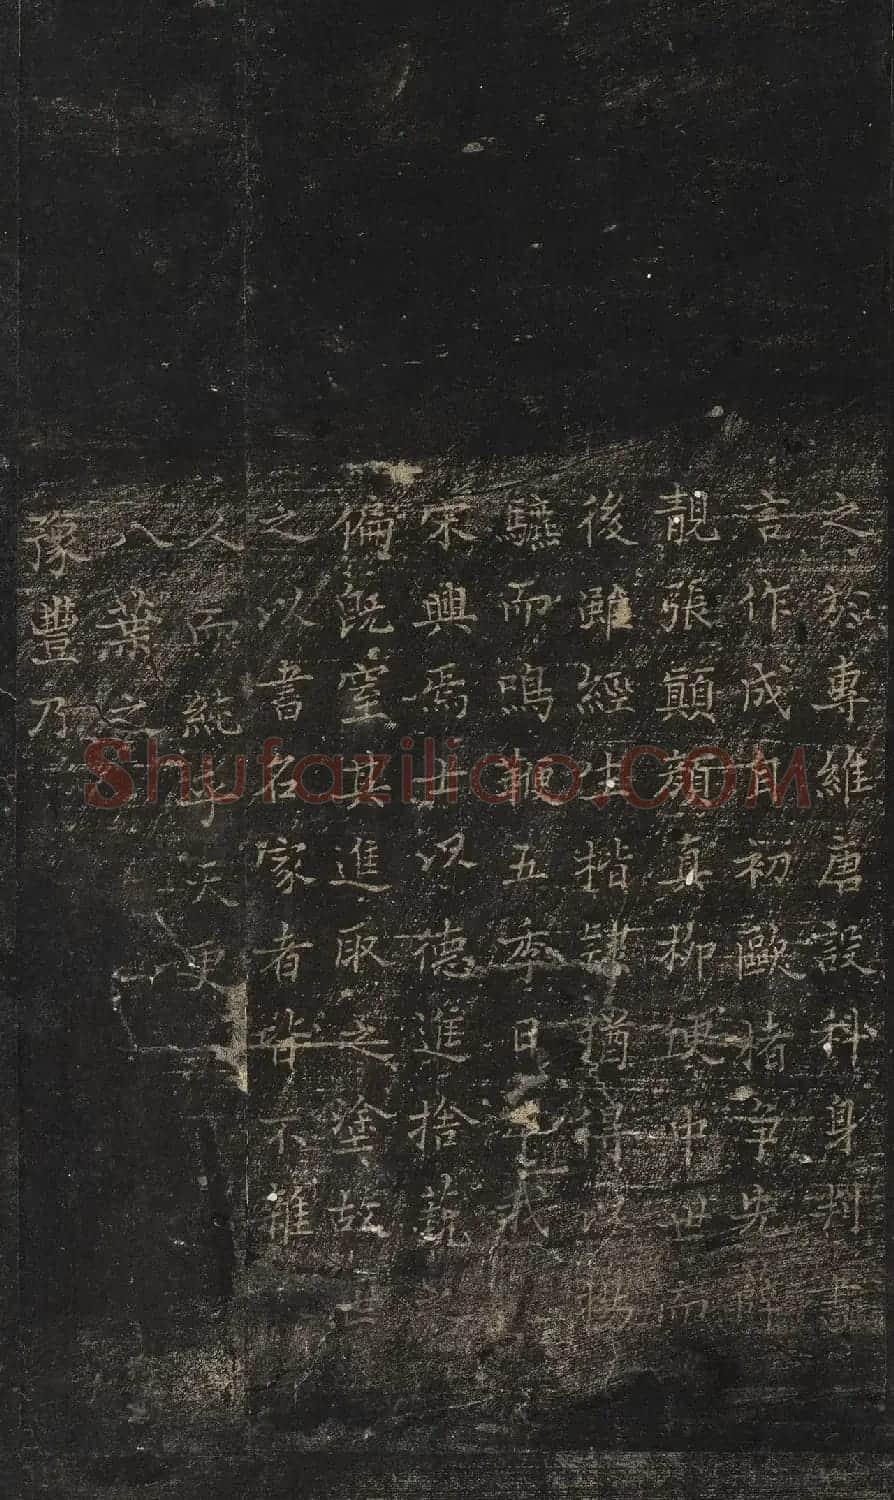 之於專維唐設科身判書
言作成有初歐褚爭先薛
靚張顛顏真柳使中世而
後雖經生楷隸猶得以揚
而鳴鞭五季日武
宋興焉世以德進捨藝
偏旣窒其進取之塗故世
之以書名家者皆不雜
人而純手天更
八葉之一
豫豐乃
Shufaziliao.COM